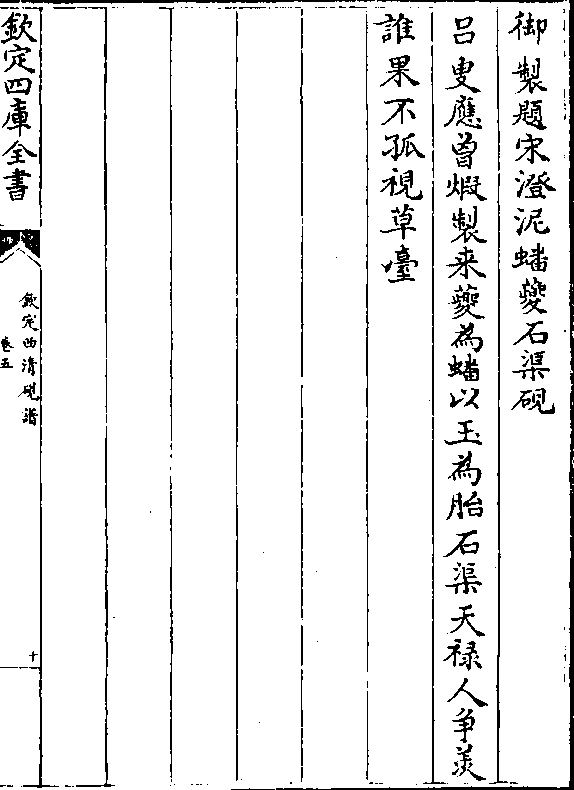 御製題宋澄泥蟠夔石渠硯
呂叟應曽煆製来夔為蟠以玉為胎石渠天禄人争羨
誰果不孤視草臺
欽定四庫全書
欽定西清硯譜
卷五
十